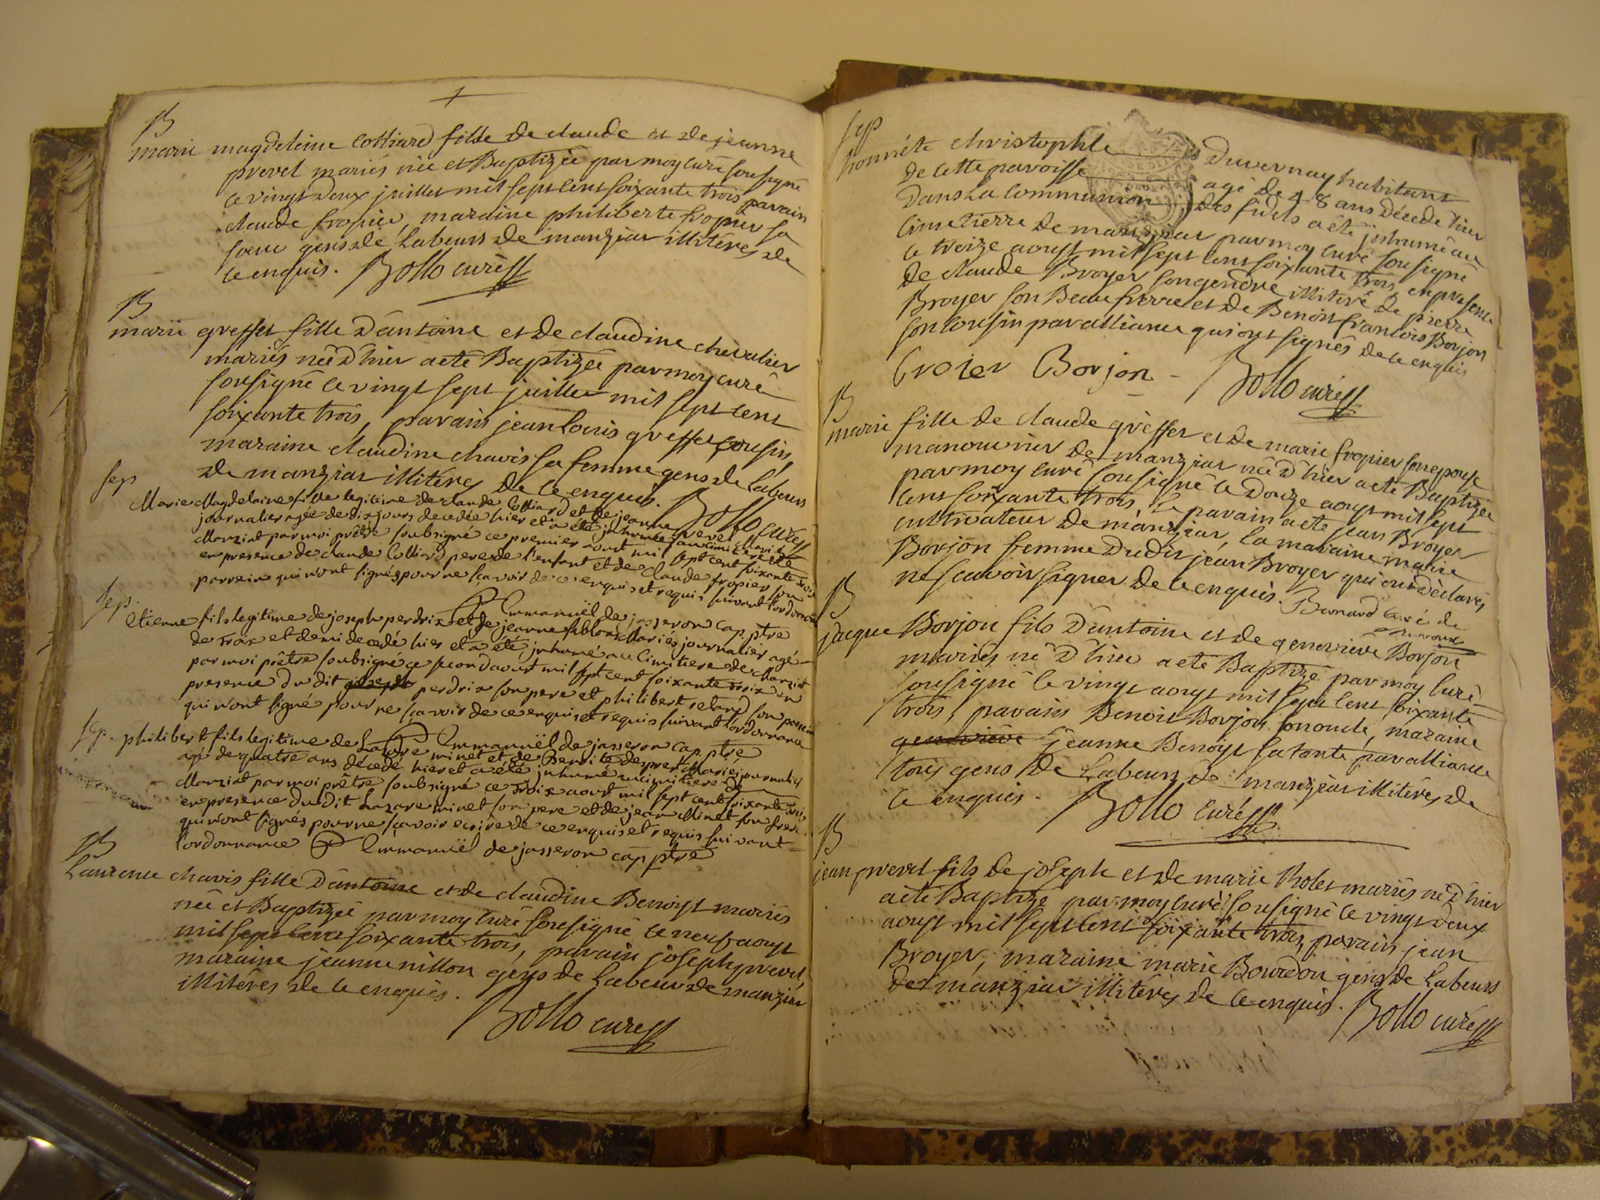 B
marie magdeleine Colliard fille de claude et de jeanne
prevel mariés née et Baptizée par moy curé sousigné
le vingt deux juillet mil sept cent soixante trois parain
claude fropier, maraine philiberte fropier sa
soeur gens de Labeurs de manziat illitérés de
ce enquis. Bollo curé
B
marie greffet fille d'antoine et de claudine chevalier
mariés née d'hier a eté Baptizée par moy curé
sousigné le vingt sept juillet mil sept cent
soixante trois, parain jean louis greffet cousin,
maraine claudine chavis sa femme gens de Labeurs
de manziat illitérés de ce enquis. Bollo curé
sep
Marie Magdelaine fille legitime de claude Colliard et de jeanne prevel Mariés
journalier agée de dix jours decedée hier et a eté inhumée au cimitiere de
Manziat par moi prêtre soubsigné ce premier aout mil sept cent soixante trois
en presence de claude Colliard pere de l'enfant et de Claude fropier son
parrain qui n'ont signés pour ne sçavoir de ce enquis et requis suivant l'ordonnance
P Emmanuël de jasseron cap ptre
sep.
Etienne fils legitime de joseph perdrix et de jeanne Mariés journalier agé
de trois et demi decedé hier et a eté inhumé au Cimitiere de Manziat
par moi prêtre soubsigné ce second aout mil sept cent soixante trois en
presence du dit perdrix son pere et philibert son parrain
qui n'ont signé pour ne sçavoir de ce enquis et requis suivant l'ordonnance
P Emmanuël de jasseron cap ptre
sep. philibert fils legitime de Lazare minet et de Benoite Mariés journaliers
agé de quatre ans decedé hier et a eté inhumé au cimitiere de
Manziat par moi prêtre soubsigné ce troix aout mil sept cent soixante trois
en presence du dit Lazare minet son pere et de jean Minet son frere
qui n'ont signés pour ne sçavoir ecrire de ce enquis et requis suivant
l'ordonnance P Emmanuël de jasseron cap ptre
B
Laurence chavis fille d'antoine et de claudine Benoist mariés
née et Baptizée par moy curé sousigné le neuf aoust
mil sept cent soixante trois, parain joseph prevel,
maraine jeanne nillon gens de Labeurs de manziat
illitérés de ce enquis.
Bollo curé
sep
honnête christophle Duvernay habitant
de cette paroisse agé de 48 ans décédé hier
dans La Communion des fidels a eté inhumé au
Cimetierre de manziat par moy curé sousigné
le treize aoust mil sept cent soixante trois, en presence
de claude Broyer son gendre illitéré de pierre
Broyer son Beau frerre et de Benoit françois Borjon
son cousin par alliance qui ont signés de ce enquis
Broier Borjon Bollo curé
B
marie fille de claude greffet et de marie fropier son epouse
manouvrier de manziat née d'hier a eté Baptizée
par moy curé sousigné le douze aoust mil sept
cent soixante trois, le parain a eté jean Broyer
cultivateur de manziat, la maraine marie
Borjon femme du dit jean Broyer qui ont déclarés
ne scavoir signer de ce enquis. Bernard curé de
B
jacque Borjon fils d'antoine et de genevieve Borjon
mariés né d'hier a eté Baptizé par moy curé
sousigné le vingt aoust mil sept cent soixante
trois, parain Benoit Borjon son oncle, maraine
genevieve jeanne Benoist sa tante par alliance
tous gens de Labeurs de manziat illitérés de
ce enquis. Bollo curé
B
jean prevel fils de joseph et de marie Rolet mariés né d'hier
a eté Baptizé par moy curé sousigné le vingt deux
aoust mil sept cent soixante trois, parain jean
Broyer, maraine marie Bourdon gens de Labeurs
de manziat illitérés de ce enquis. Bollo curé